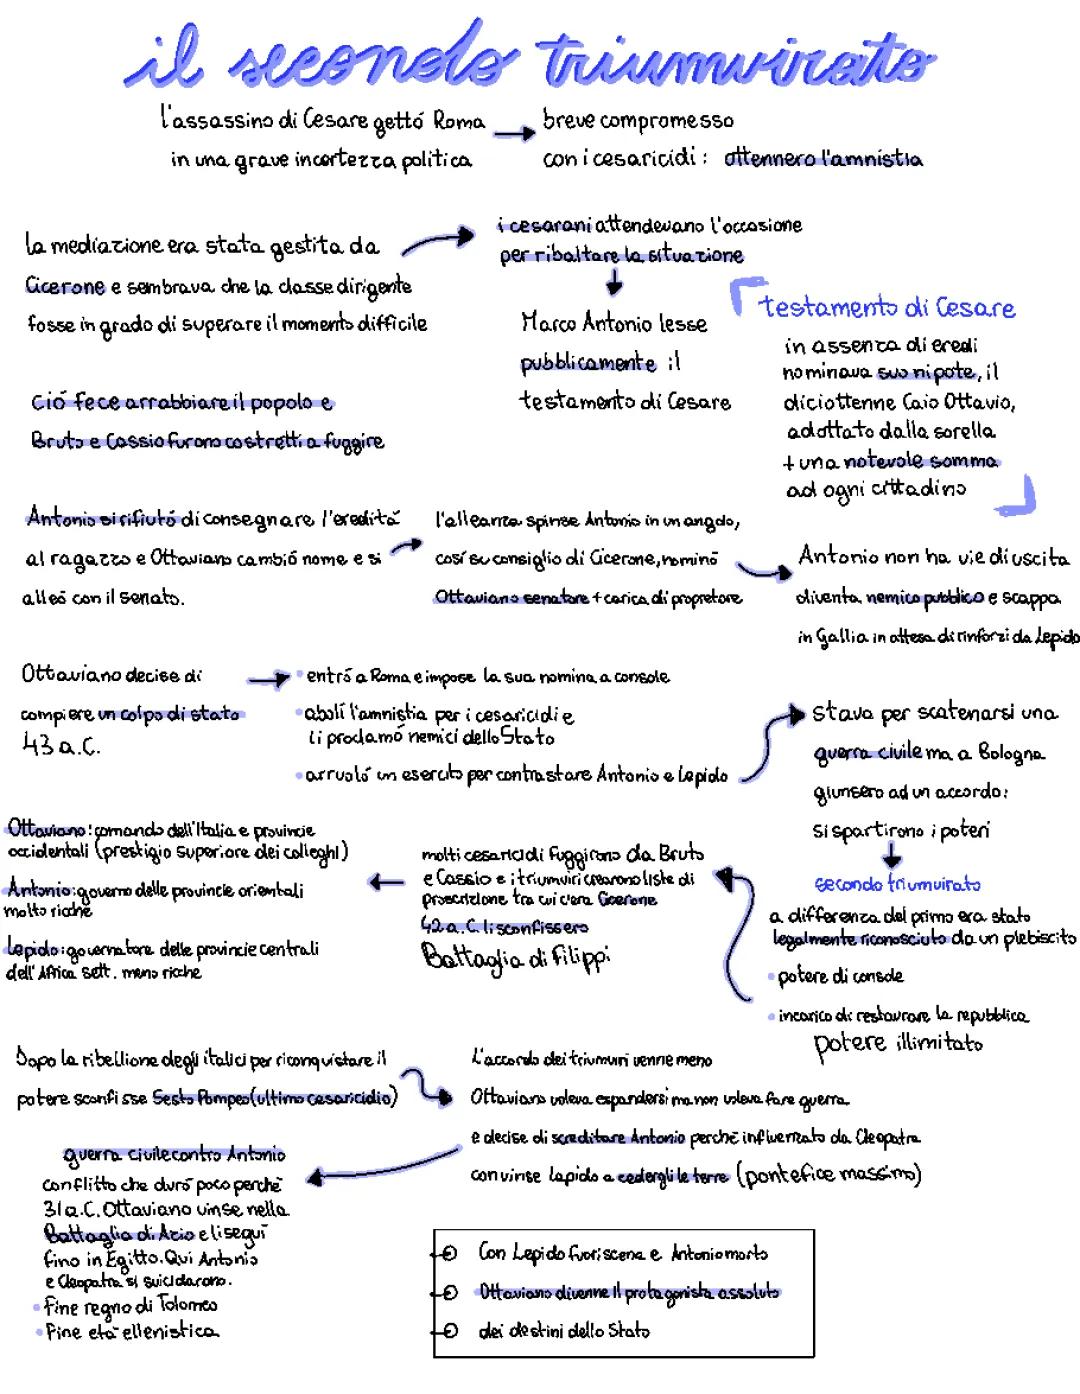 il secondo triumvirato
l'assassino di Cesare gettó Roma
in una grave incertezza politica
breve compromesso
con i cesaricidi: ottennero l'amnistia
la mediazione era stata gestita da
Cicerone e sembrava che la classe dirigente
fosse in grado di superare il momento difficile
i cesarani attendevano l'occasione
per ribaltare la situazione
Marco Antonio lesse
pubblicamente il
testamento di Cesare
testamento di Cesare
in assenza di eredi
nominava suo nipote, il
diciottenne Caio Ottavio,
adottato dalla sorella
+ una notevole somma
ad ogni cittadino
ció fece arrabbiare il popolo e
Bruto e Cassio furono costretti a fuggire
Antonio si rifiutó di consegnare l'ereditá
al ragazzo e Ottaviano cambió nome e si
alleó con il senato.
l'alleanza spinse Antonio in un angolo,
cosí su consiglio di Cicerone, nominó
Ottaviano senatore + carica di propretore
Antonio non ha vie di uscita
diventa nemico pubblico e scappa
in Gallia in attesa di rinforzi da Lepido
Ottaviano decise di
compiere un colpo di stato
43 a.C.
• entró a Roma e impose la sua nomina a console
• abolí l'amnistia per i cesaricidi e
li proclamó nemici dello Stato
• arruoló un esercito per contrastare Antonio e Lepido
stava per scatenarsi una
guerra civile ma a Bologna
giunsero ad un accordo:
si spartirono i poteri
secondo triumvirato
a differenza del primo era stato
legalmente riconosciuto da un plebiscito
• potere di console
• incarico di restaurare la repubblica
potere illimitato
molti cesaricidi fuggirono da Bruto
e Cassio e i triumviri crearono liste di
proscrizione tra cui c'era Cicerone
42 a.C. li sconfissero
Battaglia di Filippi
Ottaviano: comando dell'Italia e provincie
occidentali (prestigio superiore dei colleghi)
Antonio: governo delle provincie orientali
molto ricche
Lepido: governatore delle provincie centrali
dell'Africa sett. meno ricche
Dopo la ribellione degli italici per riconquistare il
potere sconfisse Sesto Pompeo (ultimo cesaricidio)
L'accordo dei triumviri venne meno
Ottaviano voleva espandersi ma non voleva fare guerra
e decise di screditare Antonio perchè influenzato da Cleopatra
convinse Lapido a cedergli le terre (pontefice massimo)
guerra civile contro Antonio
conflitto che duró poco perchè
31 a.C. Ottaviano vinse nella
Battaglia di Azio e li seguí
fino in Egitto. Qui Antonio
e Cleopatra si suicidarono.
• Fine regno di Tolomeo
• Fine etá ellenistica
Con Lepido fuori scena e Antonio morto
Ottaviano divenne il protagonista assoluto
dei destini dello Stato